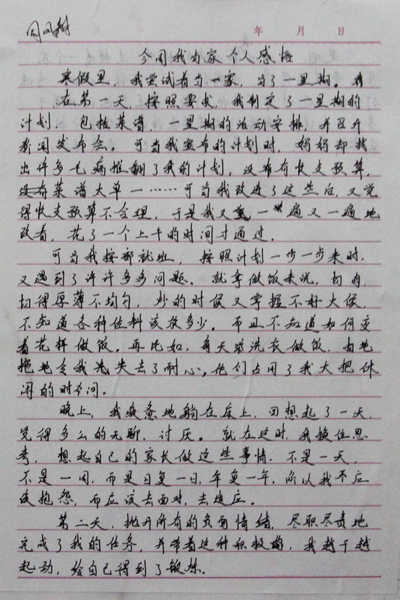 年 月 日
今周我当家个人感悟
寒假里，我尝试着当一家，当了一星期。
在第一天，按照要求，我制定了一星期的
计划，包括菜谱，一星期的活动安排，并召开
新闻发布会，可当我发布的计划时，妈妈却找
出许多毛病推翻了我的计划，没有有收支预算，
没有菜谱太单一……可当我改进了这些后，又觉
得收支预算不合理，于是我又一遍又一遍地
改着，花了一个上午的时间才通过。
可当我按部就班，按照计划一步一步来时，
又遇到了许许多多问题。就拿做饭来说，
切得厚薄不均匀，炒的时候又掌握不好火候，
不知道各种佐料该放多少。而且不知道如何变
着花样做饭，再比如，每天要洗衣做饭，
拖地令我失去了耐心，他们占用了我大把休
闲的时间。
晚上，我疲惫地躺在床上，回想起了一天，
觉得多么的无聊，讨厌。就在这时，我换位思
考，想起自己的家长做这些事情，不是一天，
不是一周，而是日复一日，年复一年，所以我不应
该抱怨，而应该去面对，去适应。
第二天，抛开所有的负面情绪，尽职尽责地
完成了我的任务，并带着这种积极，我越干越
起劲，给自己得到了锻炼。